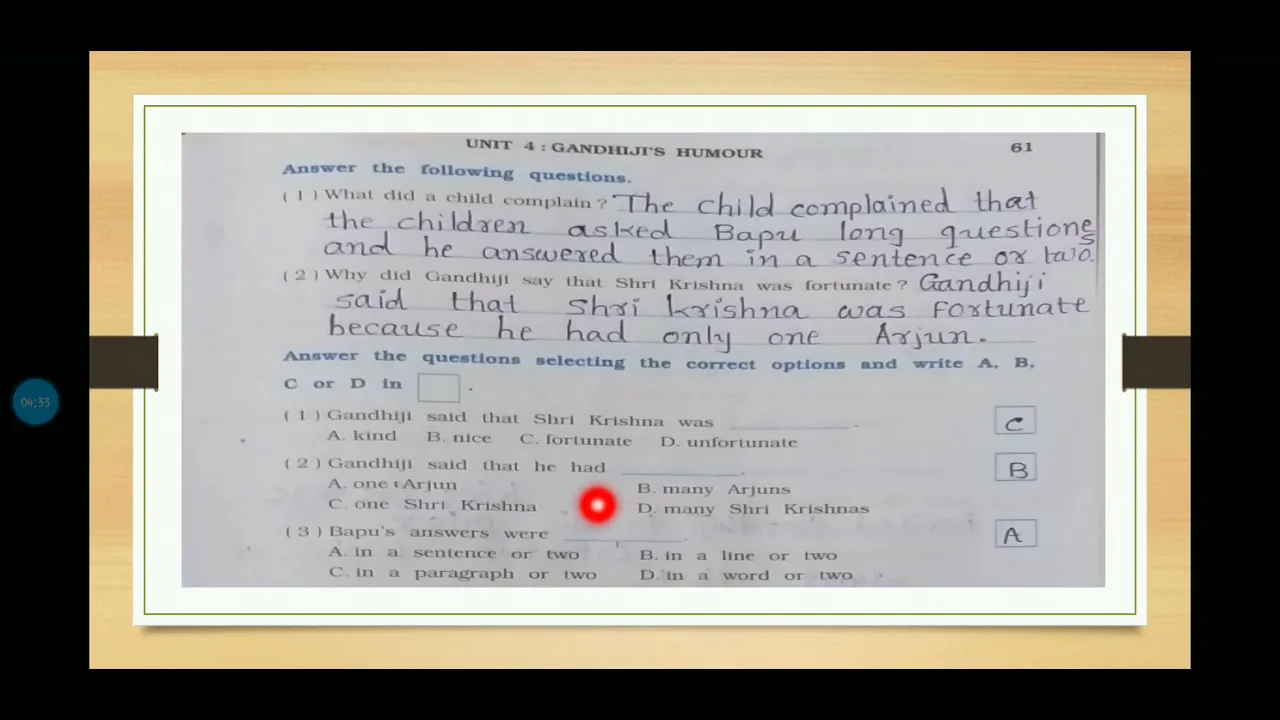 UNIT 4 : GANDHIJI'S HUMOUR 61
Answer the following questions.
( 1 ) What did a child complain ? The child complained that
the children asked Bapu long questions
and he answered them in a sentence or two.
( 2 ) Why did Gandhiji say that Shri Krishna was fortunate ? Gandhiji
said that Shri krishna was fortunate
because he had only one Arjun.
Answer the questions selecting the correct options and write A, B,
C or D in .
( 1 ) Gandhiji said that Shri Krishna was __________ . C
A. kind B. nice C. fortunate D. unfortunate
( 2 ) Gandhiji said that he had __________ . B
A. one Arjun B. many Arjuns
C. one Shri Krishna D. many Shri Krishnas
( 3 ) Bapu's answers were __________ . A
A. in a sentence or two B. in a line or two
C. in a paragraph or two D. in a word or two
04:33